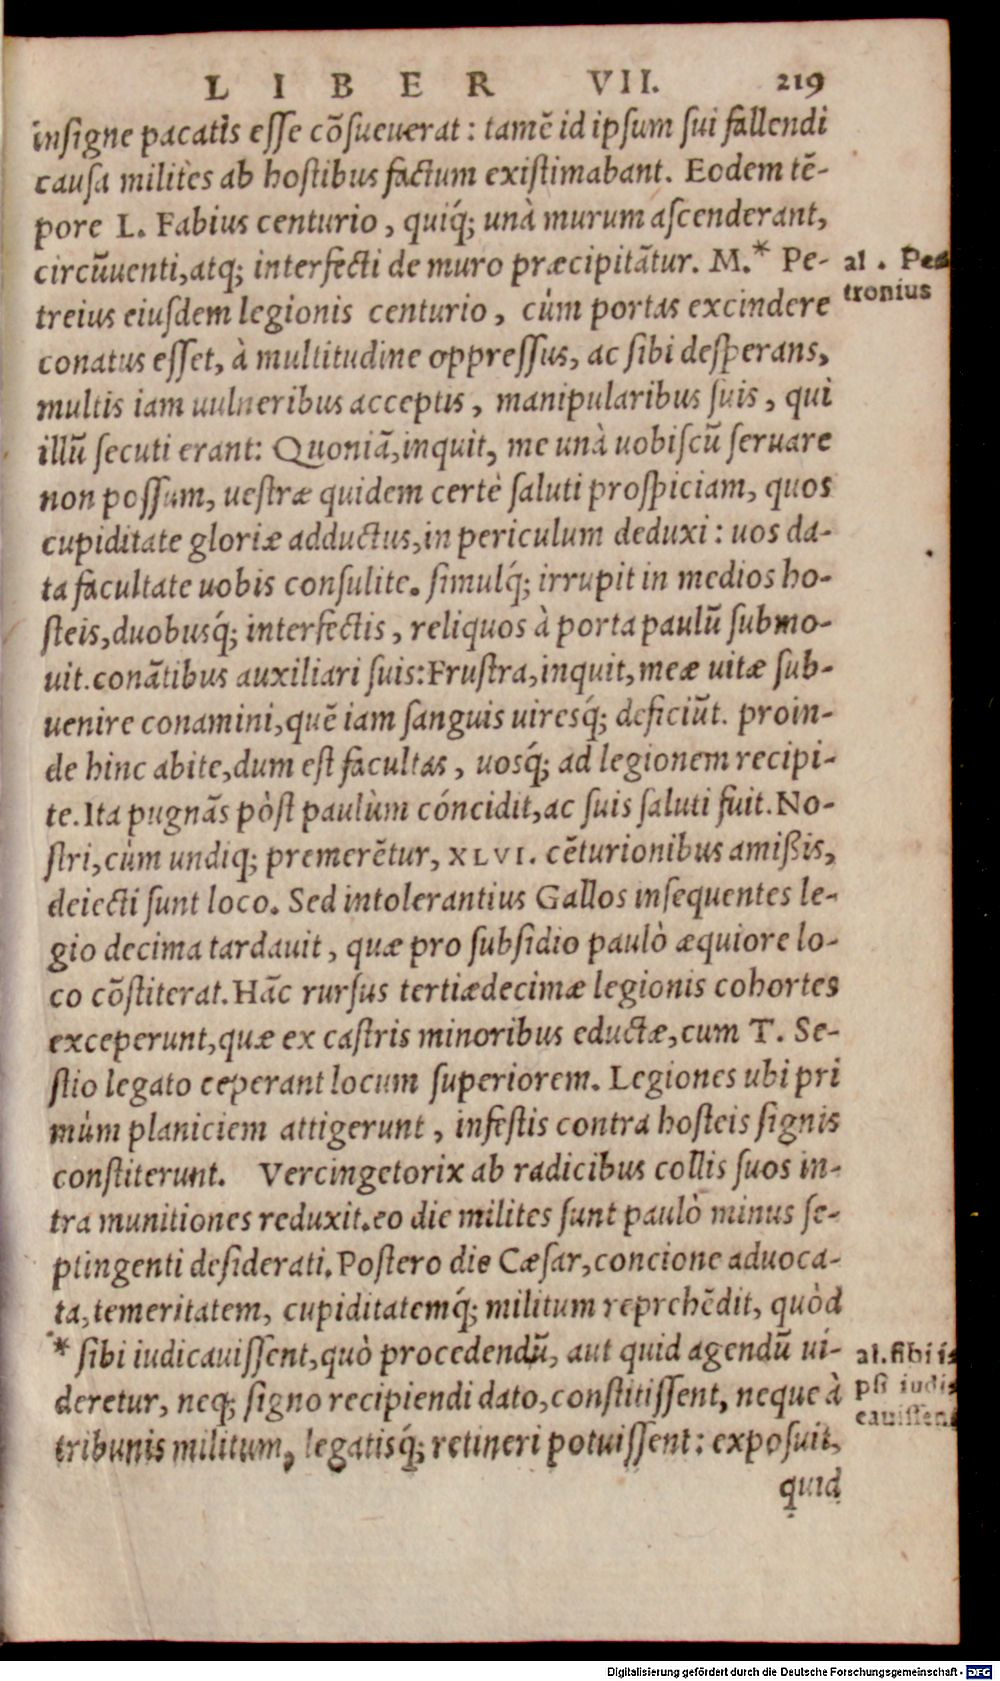 LIBER VII. 219
inſigne pacatis eſſe cõſueuerat : tamẽ id ipſum ſui fallendi
cauſa milites ab hoſtibus factum exiſtimabant. Eodem tẽ-
pore L. Fabius centurio, quiq́; unà murum aſcenderant,
circũuenti, atq; interfecti de muro præcipitãtur. M.* Pe-
al. Pe
tronius
treius eiuſdem legionis centurio, cùm portas excindere
conatus eſſet, à multitudine oppreſſus, ac ſibi deſperans,
multis iam uulneribus acceptis, manipularibus ſuis, qui
illũ ſecuti erant: Quoniã, inquit, me unà uobiſcũ ſeruare
non poſſum, ueſtræ quidem certè ſaluti proſpiciam, quos
cupiditate gloriæ adductus, in periculum deduxi : uos da-
ta facultate uobis conſulite. ſimulq́; irrupit in medios ho-
ſteis, duobusq́; interfectis, reliquos à porta paulũ ſubmo-
uit. conãtibus auxiliari ſuis: Fruſtra, inquit, meæ uitæ ſub-
uenire conamini, quẽ iam ſanguis uiresq́; deficiũt. proin-
de hinc abite, dum eſt facultas, uosq́; ad legionem recipi-
te. Ita pugnãs pòſt paulùm cóncidit, ac ſuis ſaluti fuit. No-
ſtri, cùm undiq; premerẽtur, XLVI. cẽturionibus amißis,
deiecti ſunt loco. Sed intolerantius Gallos inſequentes le-
gio decima tardauit, quæ pro ſubſidio paulò æquiore lo-
co cõſtiterat. Hãc rurſus tertiædecimæ legionis cohortes
exceperunt, quæ ex caſtris minoribus eductæ, cum T. Se-
ſtio legato ceperant locum ſuperiorem. Legiones ubi pri
mùm planiciem attigerunt, infeſtis contra hoſteis ſignis
conſtiterunt. Vercingetorix ab radicibus collis ſuos in-
tra munitiones reduxit. eo die milites ſunt paulò minus ſe-
ptingenti deſiderati. Poſtero die Cæſar, concione aduoca-
ta, temeritatem, cupiditatemq́; militum reprehẽdit, quòd
* ſibi iudicauiſſent, quò procedendũ, aut quid agendũ ui-
al. ſibi i
pſi iudi
cauiſſen
deretur, neq; ſigno recipiendi dato, conſtitiſſent, neque à
tribunis militum, legatisq́; retineri potuiſſent : expoſuit,
quid
Digitalisierung gefördert durch die Deutsche Forschungsgemeinschaft - DFG